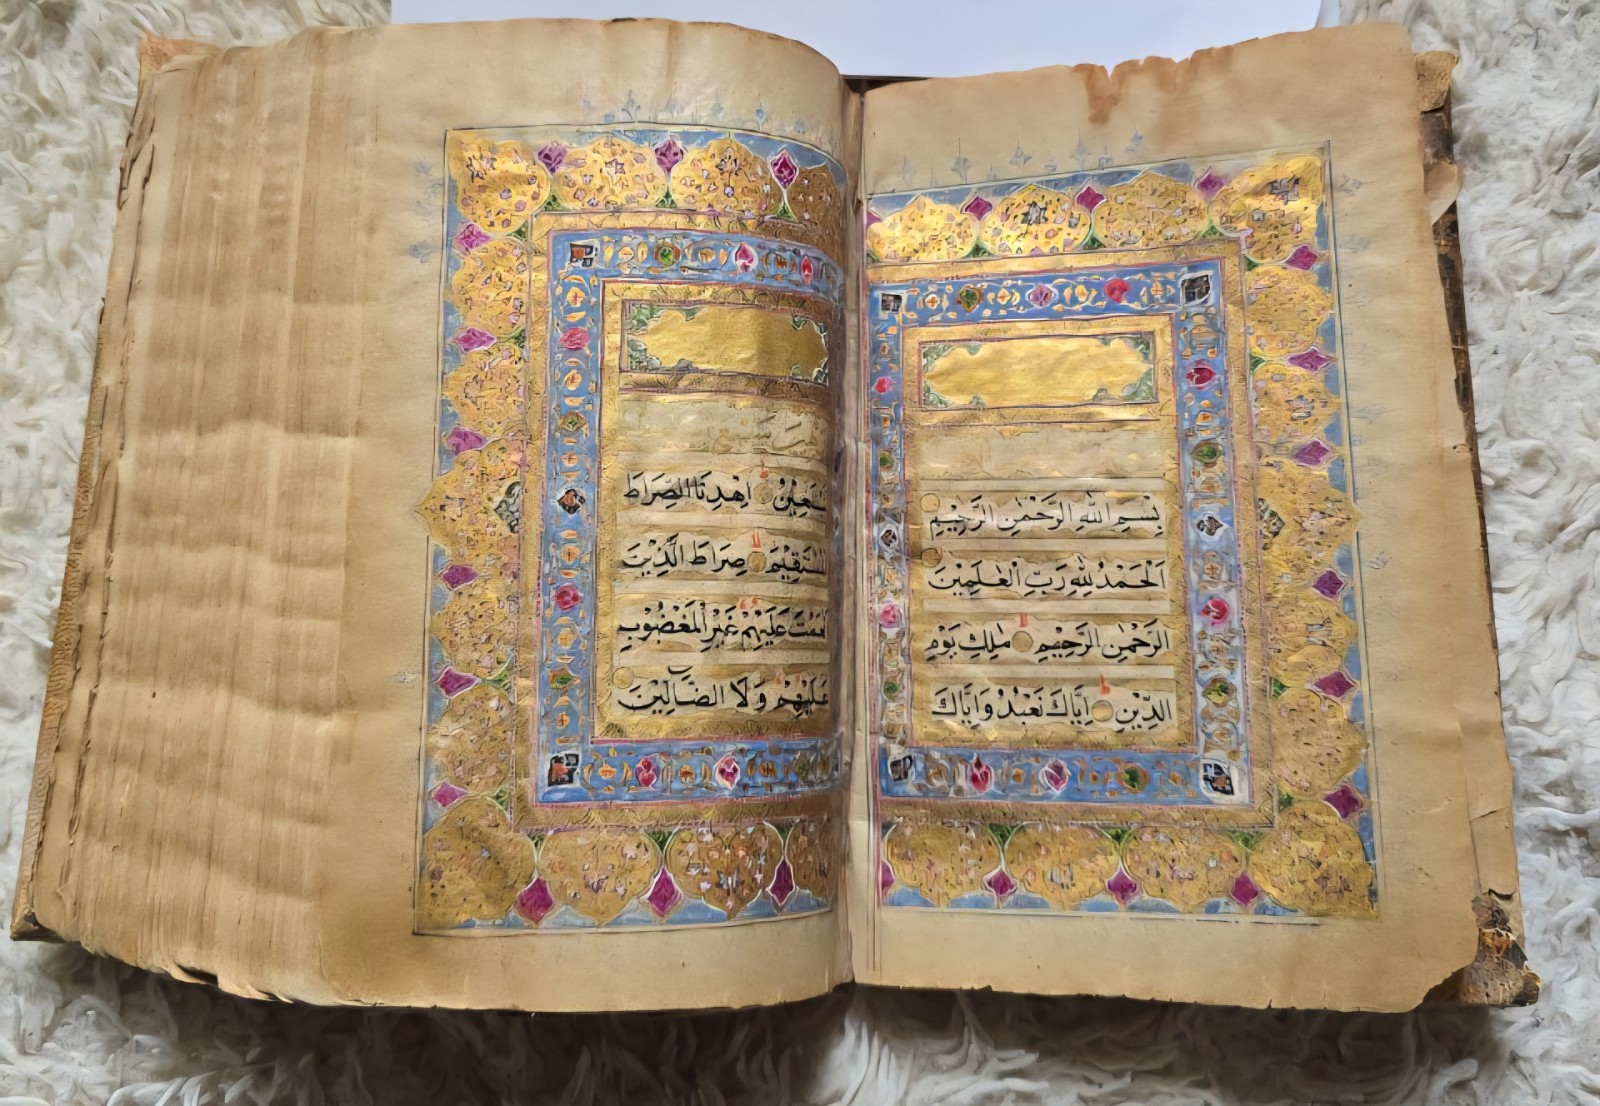 بِسْمِ اللهِ الرَّحْمٰنِ الرَّحِيْمِ
اَلْحَمْدُ لِلّٰهِ رَبِّ الْعٰلَمِيْنَ
الرَّحْمٰنِ الرَّحِيْمِ مٰلِكِ يَوْمِ
الدِّيْنِ اِيَّاكَ نَعْبُدُ وَاِيَّاكَ
نَسْتَعِيْنُ اِهْدِنَا الصِّرَاطَ
الْمُسْتَقِيْمَ صِرَاطَ الَّذِيْنَ
اَنْعَمْتَ عَلَيْهِمْ غَيْرِ الْمَغْضُوْبِ
عَلَيْهِمْ وَلَا الضَّالِّيْنَ